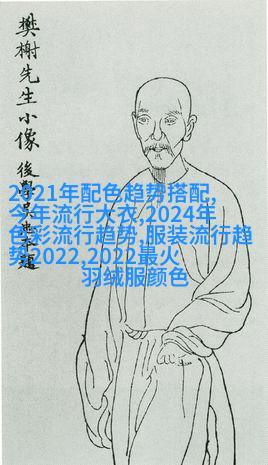 樊榭先生小像
後學吳
2021年配色趋势搭配,
今年流行大衣,2024年
色彩流行趋势,服装流行趋
势2022,2022最火
羽绒服颜色